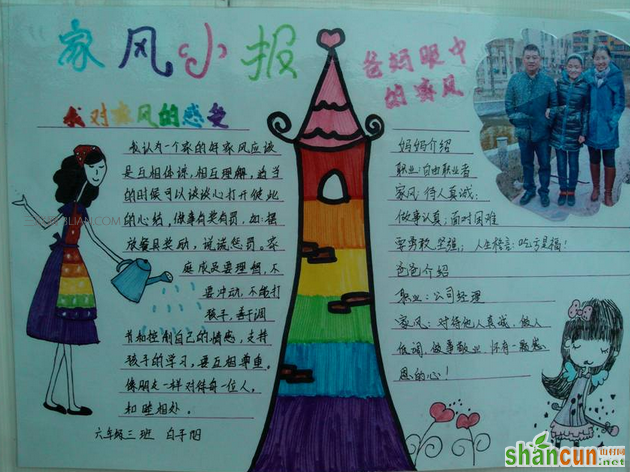 家风小报
爸妈眼中
的家风
我对家风的感受
我认为一个家的好家风应该
是互相体谅,相互理解,适当
的时候可以谈谈心打开彼此
的心结,做事有奖有罚。如:摆
放餐具奖励,说谎惩罚。家
庭成员要理想,不
要冲动,不能打
孩子,善于调
节和控制自己的情感,支持
孩子的学习,要互相尊重。
像朋友一样对待每一位人,
和睦相处。
六年级三班 白子阳
妈妈介绍
职业:自由职业者
家风:待人真诚;
做事认真;面对困难
要勇敢坚强;人生格言:吃亏是福!
爸爸介绍
职业:公司经理
家风:对待他人真诚,做人
低调,做事敬业,怀有一颗感
恩的心!
shancun
山村网
.net